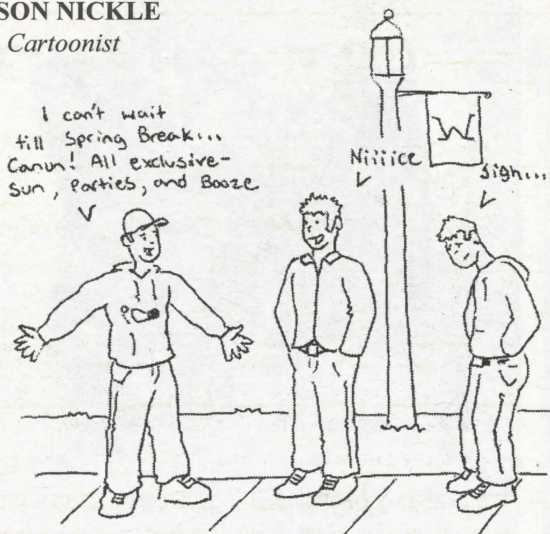 SON NICKLE
Cartoonist
I can't wait
till Spring Break...
Canun! All exclusive-
Sun, parties, and Booze
Niiiice
Sigh...
W